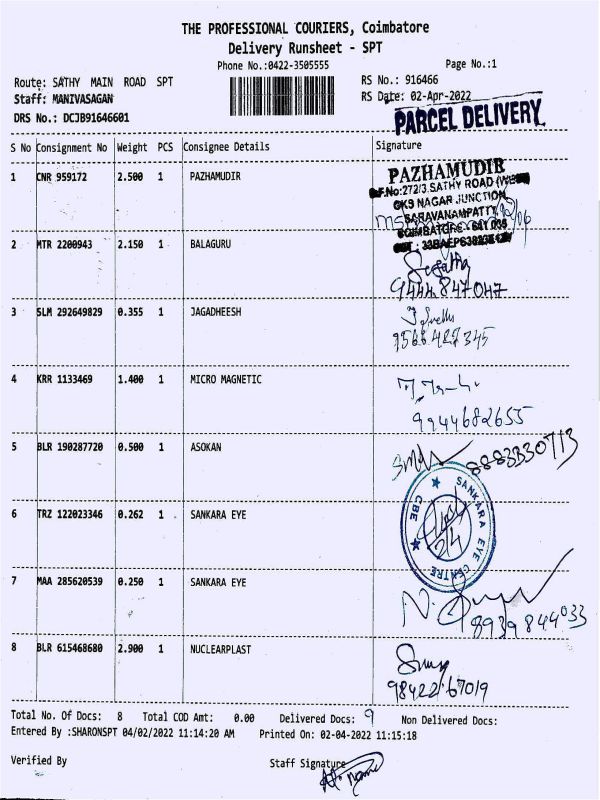 THE PROFESSIONAL COURIERS, Coimbatore
Delivery Runsheet - SPT
Phone No.:0422-3505555
Page No.:1
Route: SATHY MAIN ROAD SPT
RS No.: 916466
Staff: MANIVASAGAN
RS Date: 02-Apr-2022
DRS No.: DCJB91646601
PARCEL DELIVERY
S No Consignment No Weight PCS Consignee Details Signature
1 CNR 959172 2.500 1 PAZHAMUDIR
PAZHAMUDIR
S.F.No:272/3.SATHY ROAD
GKS NAGAR JUNCTION
SARAVANAMPATTY
COIMBATORE - 641 035
2 MTR 2200943 2.150 1 BALAGURU
9444847047
3 SLM 292649829 0.355 1 JAGADHEESH
9566427345
4 KRR 1133469 1.400 1 MICRO MAGNETIC
9944682655
5 BLR 190287720 0.500 1 ASOKAN
8883330713
6 TRZ 122023346 0.262 1 SANKARA EYE
SANKARA EYE CENTRE
CBE
2/4
7 MAA 285620539 0.250 1 SANKARA EYE
8939844033
8 BLR 615468680 2.900 1 NUCLEARPLAST
9842267019
Total No. Of Docs: 8 Total COD Amt: 0.00 Delivered Docs: 9 Non Delivered Docs:
Entered By :SHARONSPT 04/02/2022 11:14:20 AM Printed On: 02-04-2022 11:15:18
Verified By
Staff Signature